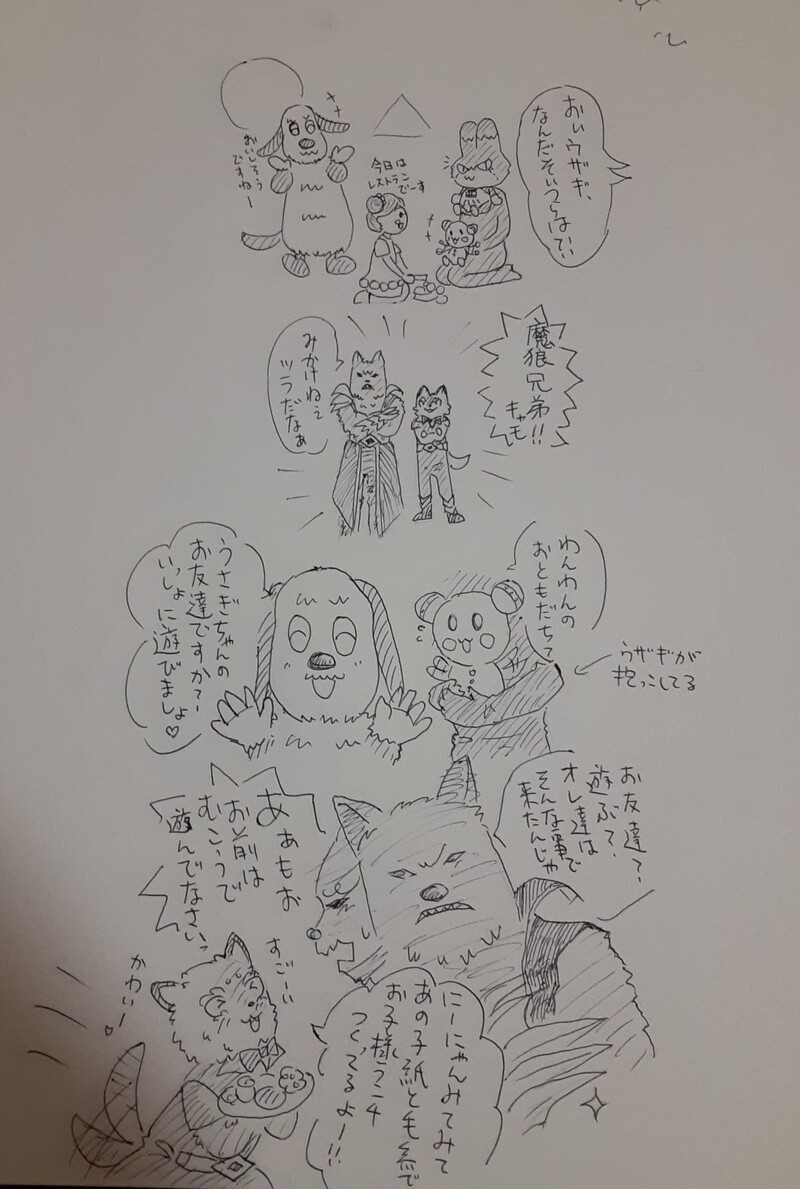 おいウサギ、
なんだそいつらは?!
今日は
レストラン
でーす
おいしそう
ですねー
魔狼兄弟!!
キャモ
みかけねぇ
ツラだなぁ
わんわんの
おともだち?
ウサギが
抱っこしてる
うさぎちゃんの
お友達ですか?ー
いっしょ
に遊びましょ♡
お友達?
遊ぶ?
オレ達は
そんな事で
来たんじゃ
あぁもお
お前は
むこうで
遊んでなさいっ
すごーい
かわいー♡
にーにゃんみてみて
あの子紙と毛糸で
お子様ランチ
つくってるよー!!